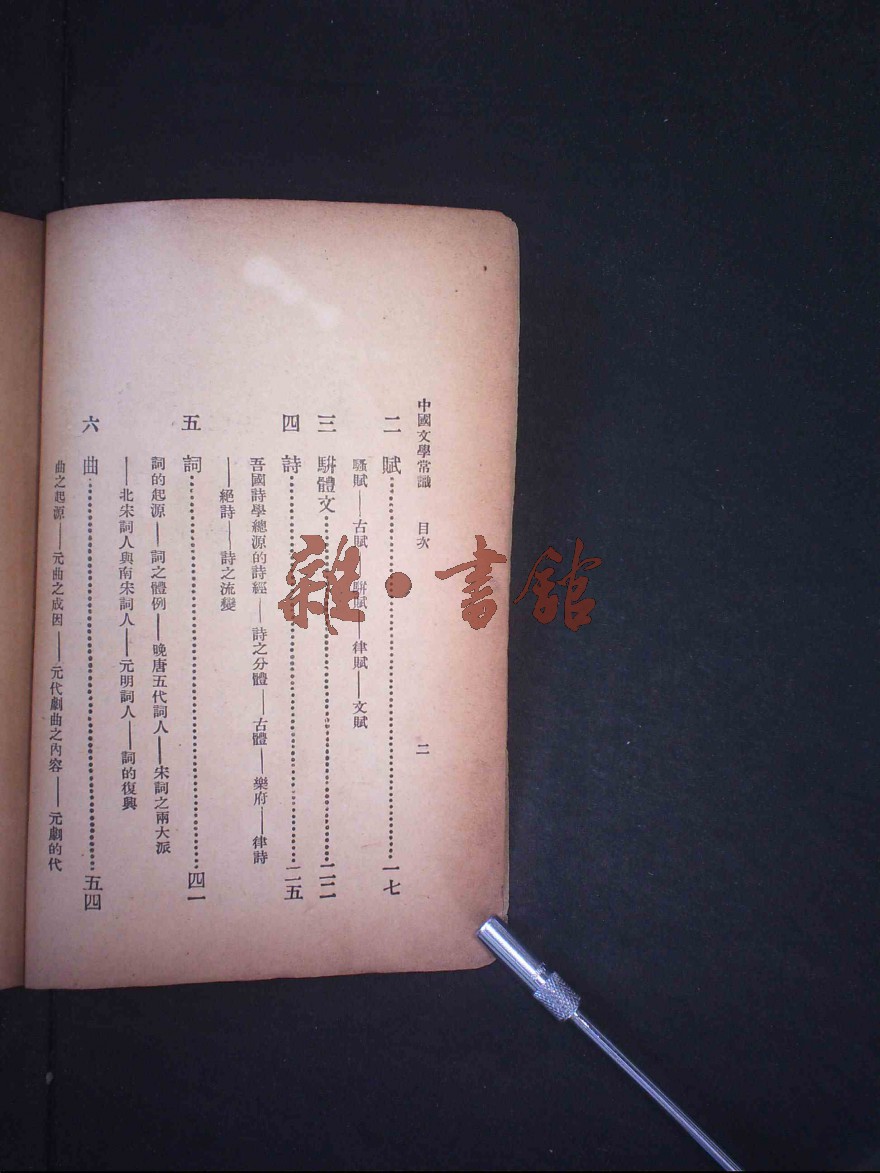 中國文學常識 目次 二
二 賦……一七
騷賦——古賦——駢賦——律賦——文賦
三 駢體文……二二
四 詩……二五
吾國詩學總源的詩經——詩之分體——古體——樂府——律詩
——絕詩——詩之流變
五 詞……四一
詞的起源——詞之體例——晚唐五代詞人——宋詞之兩大派
——北宋詞人與南宋詞人——元明詞人——詞的復興
六 曲……五四
曲之起源——元曲之成因——元代劇曲之內容——元劇的代
雜·書館